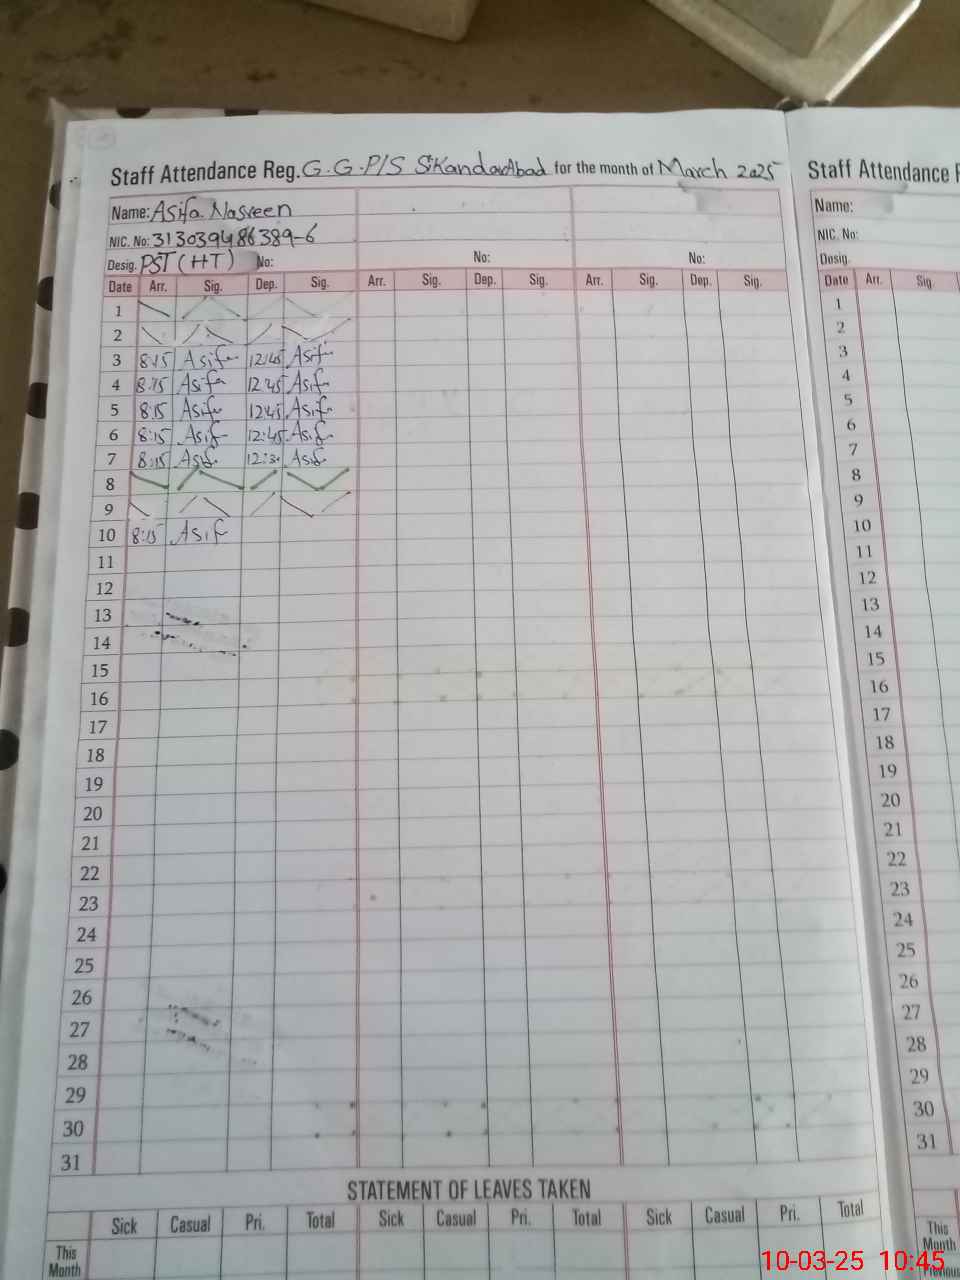 Staff Attendance Reg. G.G.P/S SiKandarAbad for the month of March 2025
Name: Asifa Nasreen
NIC. No: 313039486389-6
Desig. PST (HT) No: No: No:
Date Arr. Sig. Dep. Sig. Arr. Sig. Dep. Sig. Arr. Sig. Dep. Sig.
1
2
3 8:15 Asifa 12:45 Asif
4 8:15 Asifa 12:45 Asif
5 8:15 Asif 12:45 Asif
6 8:15 Asif 12:45 Asif
7 8:15 Asif 12:30 Asif
8
9
10 8:15 Asif
11
12
13
14
15
16
17
18
19
20
21
22
23
24
25
26
27
28
29
30
31
STATEMENT OF LEAVES TAKEN
Sick Casual Pri. Total Sick Casual Pri. Total Sick Casual Pri. Total
This
Month
Staff Attendance
Name:
NIC. No:
Desig.
Date Arr. Sig.
1
2
3
4
5
6
7
8
9
10
11
12
13
14
15
16
17
18
19
20
21
22
23
24
25
26
27
28
29
30
31
This
Month
Previous
10-03-25 10:45